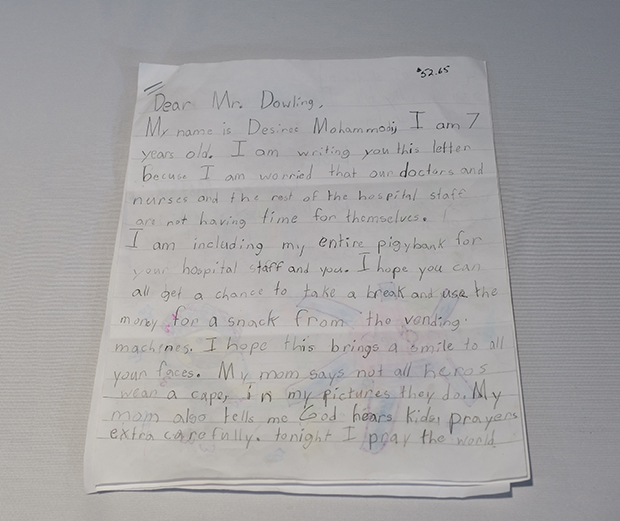 $52.65
Dear Mr. Dowling,
My name is Desiree Mohammadi, I am 7
years old. I am writing you this letter
becuse I am worried that our doctors and
nurses and the rest of the hospital staff
are not having time for themselves.
I am including my entire pigybank for
your hospital staff and you. I hope you can
all get a chance to take a break and use the
money for a snack from the vending
machines. I hope this brings a smile to all
your faces. My mom says not all heros
wear a cape, in my pictures they do. My
mom also tells me God hears kids, prayers
extra carefully. tonight I pray the world